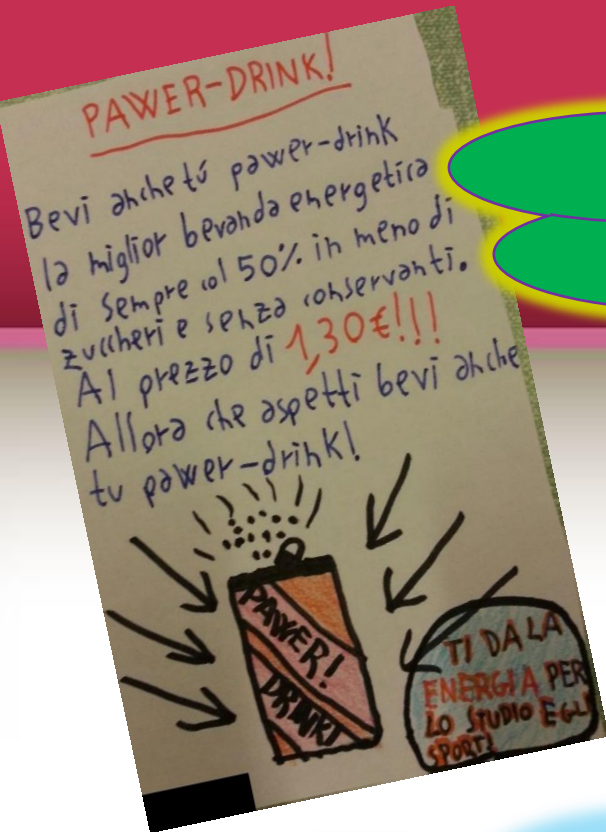 PAWER-DRINK!
Bevi anche tú pawer-drink
la miglior bevanda energetica
di sempre col 50% in meno di
zuccheri e senza conservanti.
Al prezzo di 1,30€!!!
Allora che aspetti bevi anche
tu pawer-drink!
PAWER!
DRINK!
TI DA LA
ENERGIA PER
LO STUDIO E GLI
SPORT!